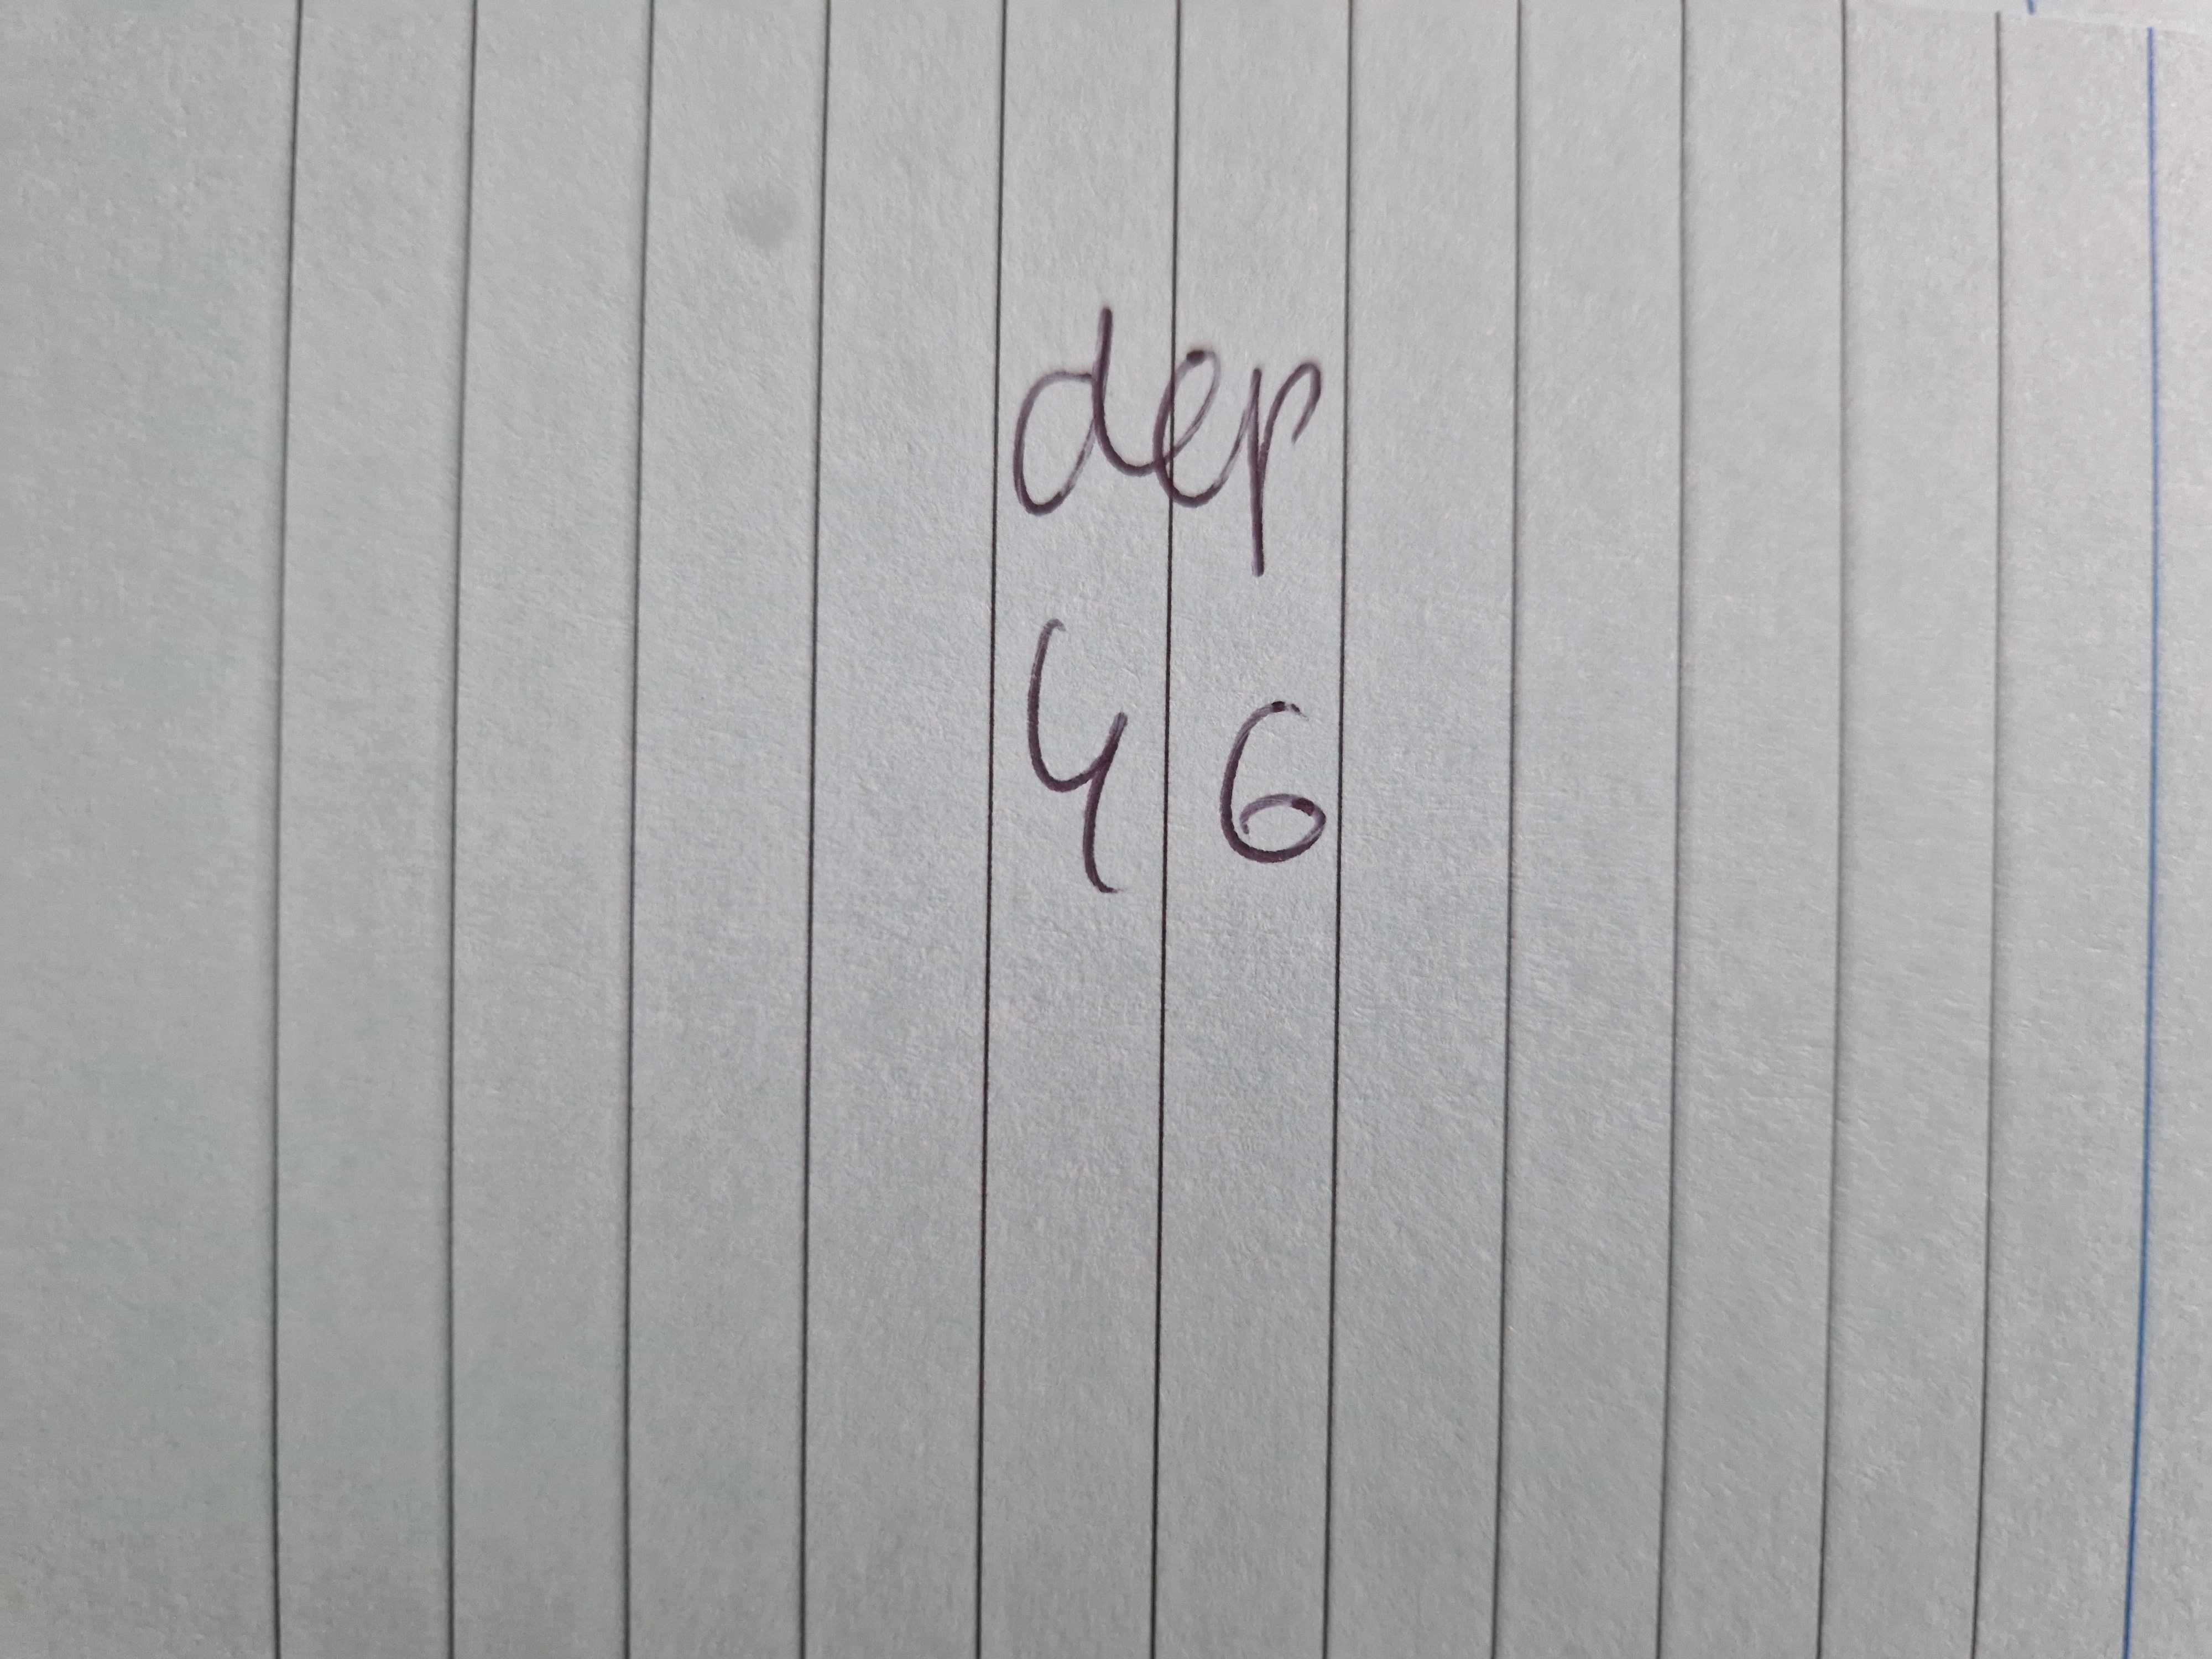 dep
46